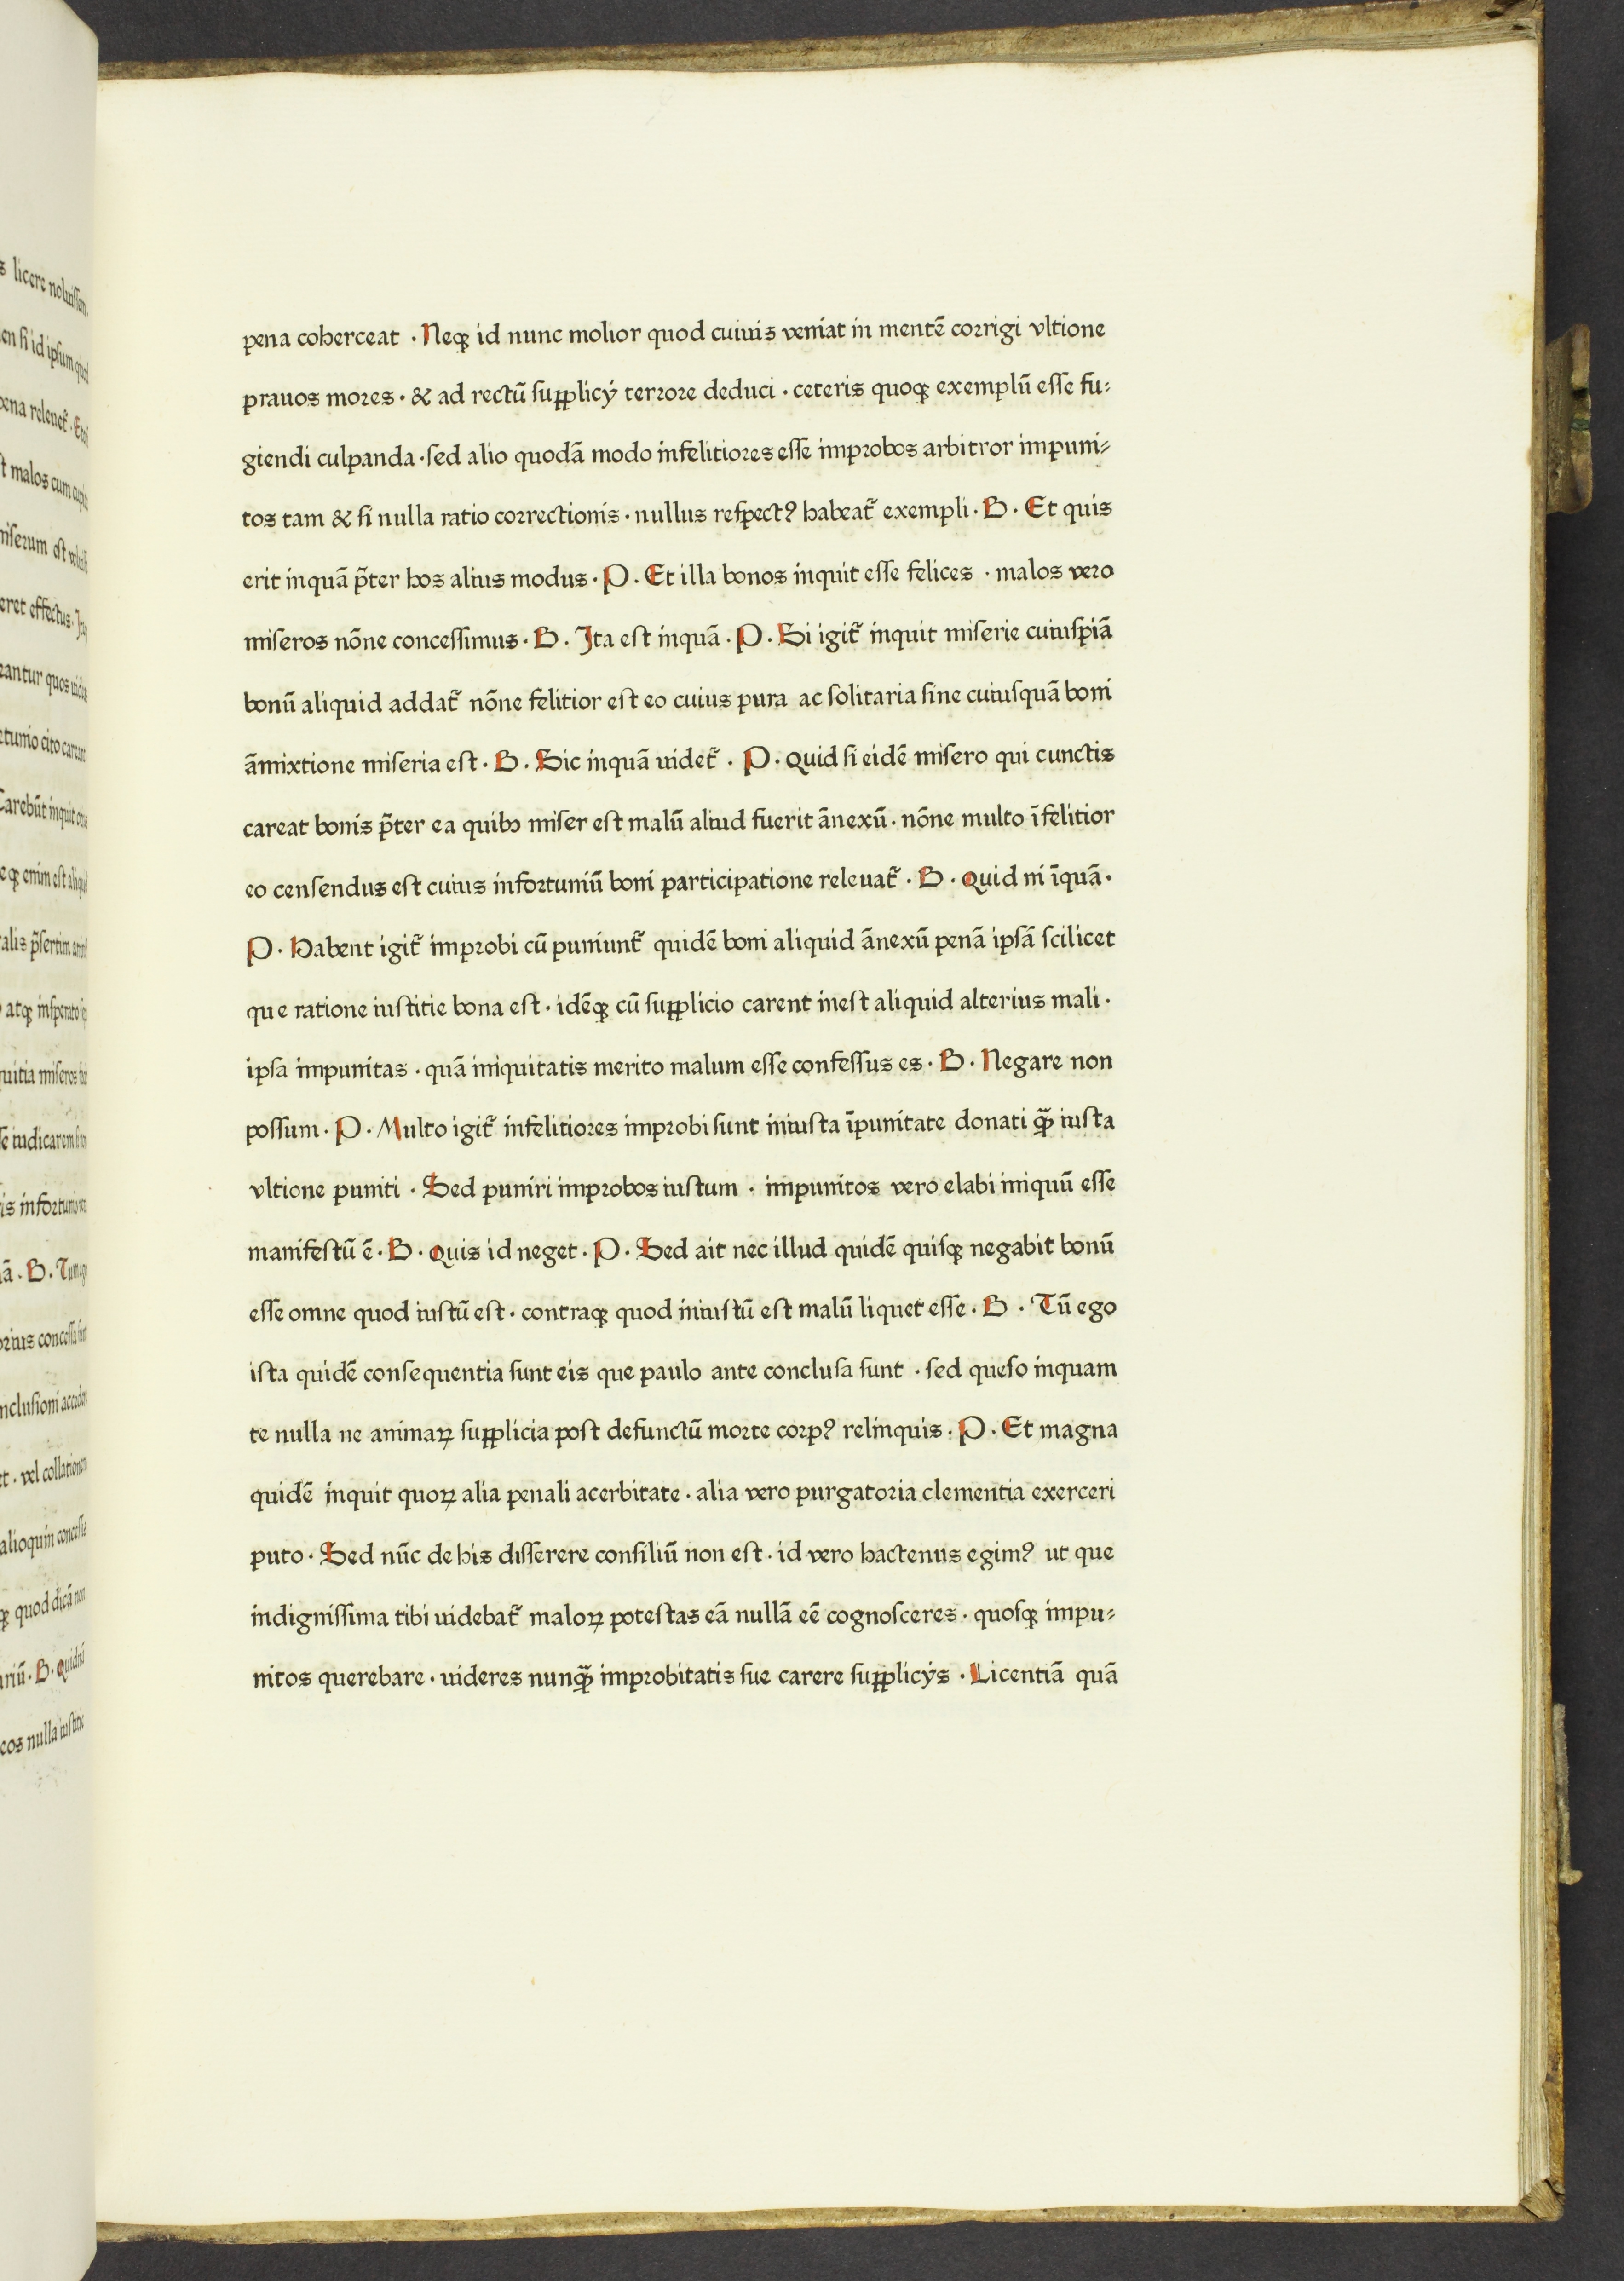 pena coherceat · Neqꝫ id nunc molior quod cuiuis veniat in mentē corrigi vltione
prauos mores · & ad rectū suꝑplicÿ terrore deduci · ceteris quoqꝫ exemplū esse fu⸗
giendi culpanda · sed alio quodā modo infelitiores esse improbos arbitror impuni⸗
tos tam & si nulla ratio correctionis · nullus respectꝰ habeat᷑ exempli · B · Et quis
erit inquā p̄ter hos alius modus · P · Et illa bonos inquit esse felices · malos vero
miseros nōne concessimus · B · Ita est inquā · P · Si igit᷑ inquit miserie cuiuspiā
bonū aliquid addat᷑ nōne felitior est eo cuius pura ac solitaria sine cuiusquā boni
āmixtione miseria est · B · Sic inquā uidet᷑ · P · Quid si eidē misero qui cunctis
careat bonis p̄ter ea quibꝫ miser est malū aliud fuerit ānexū · nōne multo īfelitior
eo censendus est cuius infortuniū boni participatione releuat᷑ · B · Quid ni īquā ·
P · Habent igit᷑ improbi cū puniunt᷑ quidē boni aliquid ānexū penā ipsā scilicet
que ratione iustitie bona est · idēqꝫ cū supplicio carent inest aliquid alterius mali ·
ipsa impunitas · quā iniquitatis merito malum esse confessus es · B · Negare non
possum · P · Multo igit᷑ infelitiores improbi sunt iniusta īpunitate donati qꝫ̄ iusta
vltione puniti · Sed puniri improbos iustum · impunitos vero elabi iniquū esse
manifestū ē · B · Quis id neget · P · Sed ait nec illud quidē quisqꝫ negabit bonū
esse omne quod iustū est · contraqꝫ quod iniustū est malū liquet esse · B · Tū ego
ista quidē consequentia sunt eis que paulo ante conclusa sunt · sed queso inquam
te nulla ne animaꝝ supplicia post defunctū morte corpꝰ relinquis · P · Et magna
quidē inquit quoꝝ alia penali acerbitate · alia vero purgatoria clementia exerceri
puto · Sed nūc de his disserere consiliū non est · id vero hactenus egimꝰ ut que
indignissima tibi uidebat᷑ maloꝝ potestas eā nullā eē cognosceres · quosqꝫ impu⸗
nitos querebare · uideres nunqꝫ̄ improbitatis sue carere supplicÿs · Licentiā quā